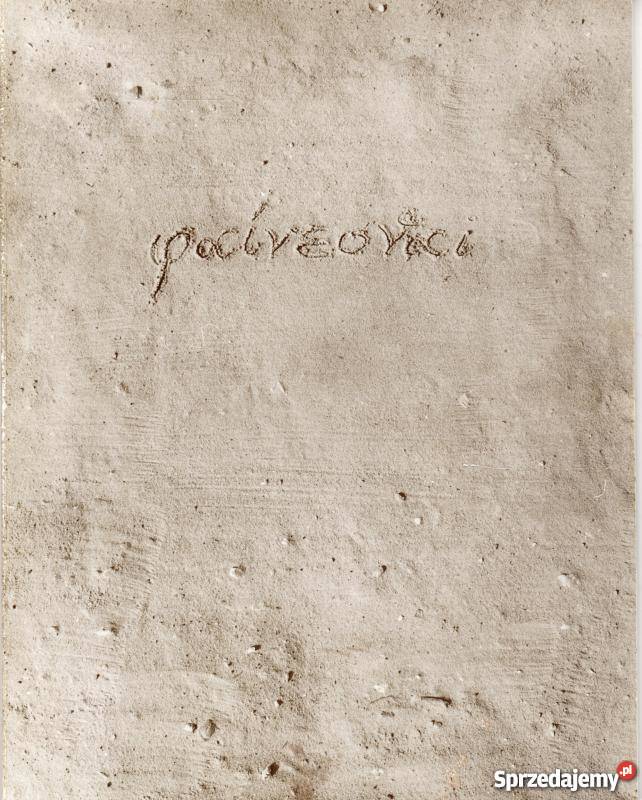 φαίνεσθαι
Sprzedajemy.pl